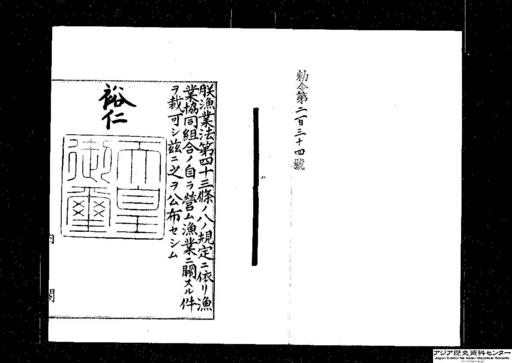 勅令第二百三十四號
朕漁業法第四十三條ノ八ノ規定ニ依リ漁
業協同組合ノ自ラ營ム漁業ニ關スル件
ヲ裁可シ茲ニ之ヲ公布セシム
裕仁
天皇
御璽
内閣
アジア歴史資料センター
Japan Center for Asian Historical Records